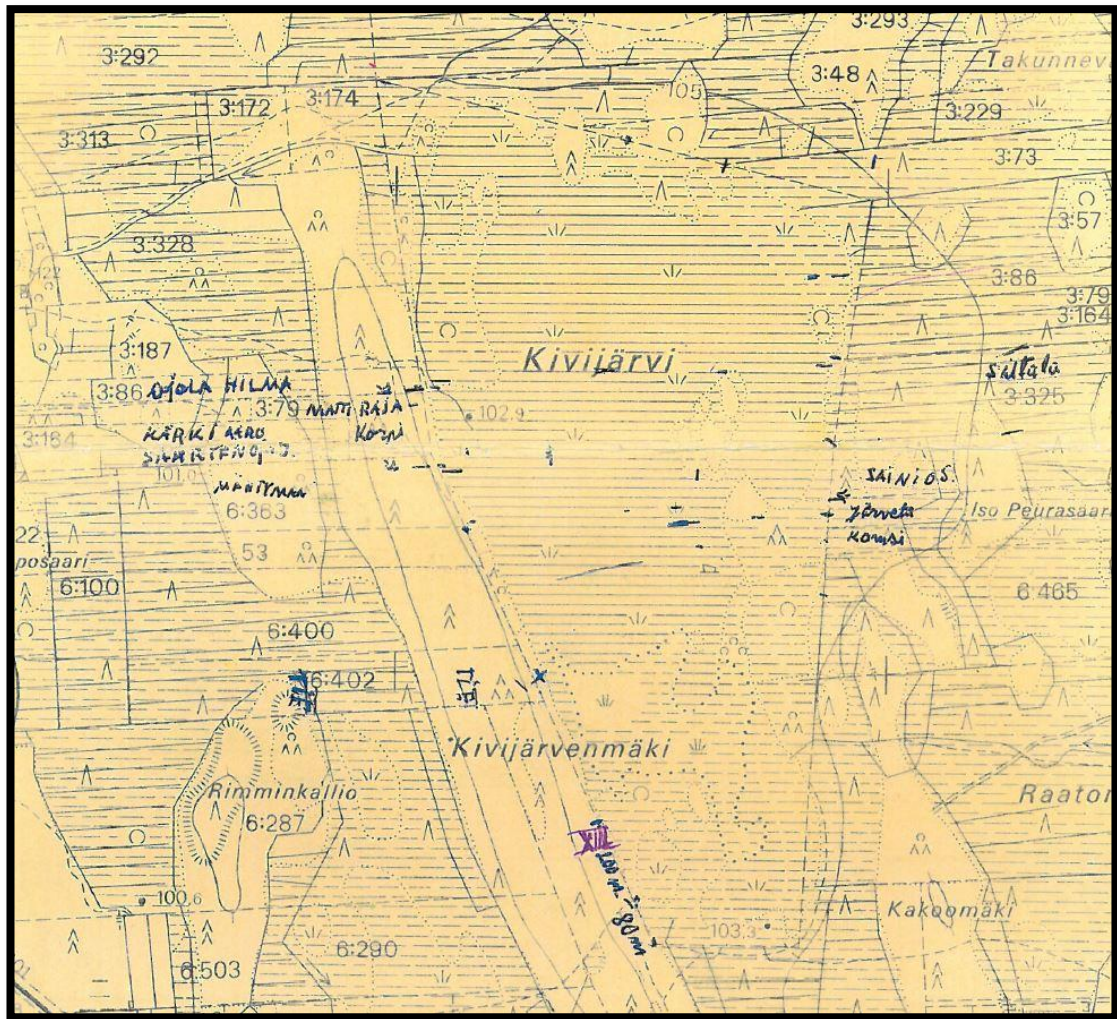 3:292
3:293
3:48
Takunnev
3:172
3:174
105
3:229
3:313
3:73
3:328
3:57
122
3:86
3:79
3:164
3:187
Kivijärvi
Siltala
3:325
3:86 OJOLA HILMA
3:79 MATTI RAJA
Korpi
102,9
KÄRKI AARO
3:164
101,0
MÄNTYMAA
6:363
SAINIO S.
Järvelä
Komsi
Iso Peurasaar
22
posaari
53
6:100
6:465
6:400
6:402
Kivijärvenmäki
Rimminkallio
6:287
Raator
XIII
200 m
80 m
100,6
Kakoomäki
103,3
6:290
6:503